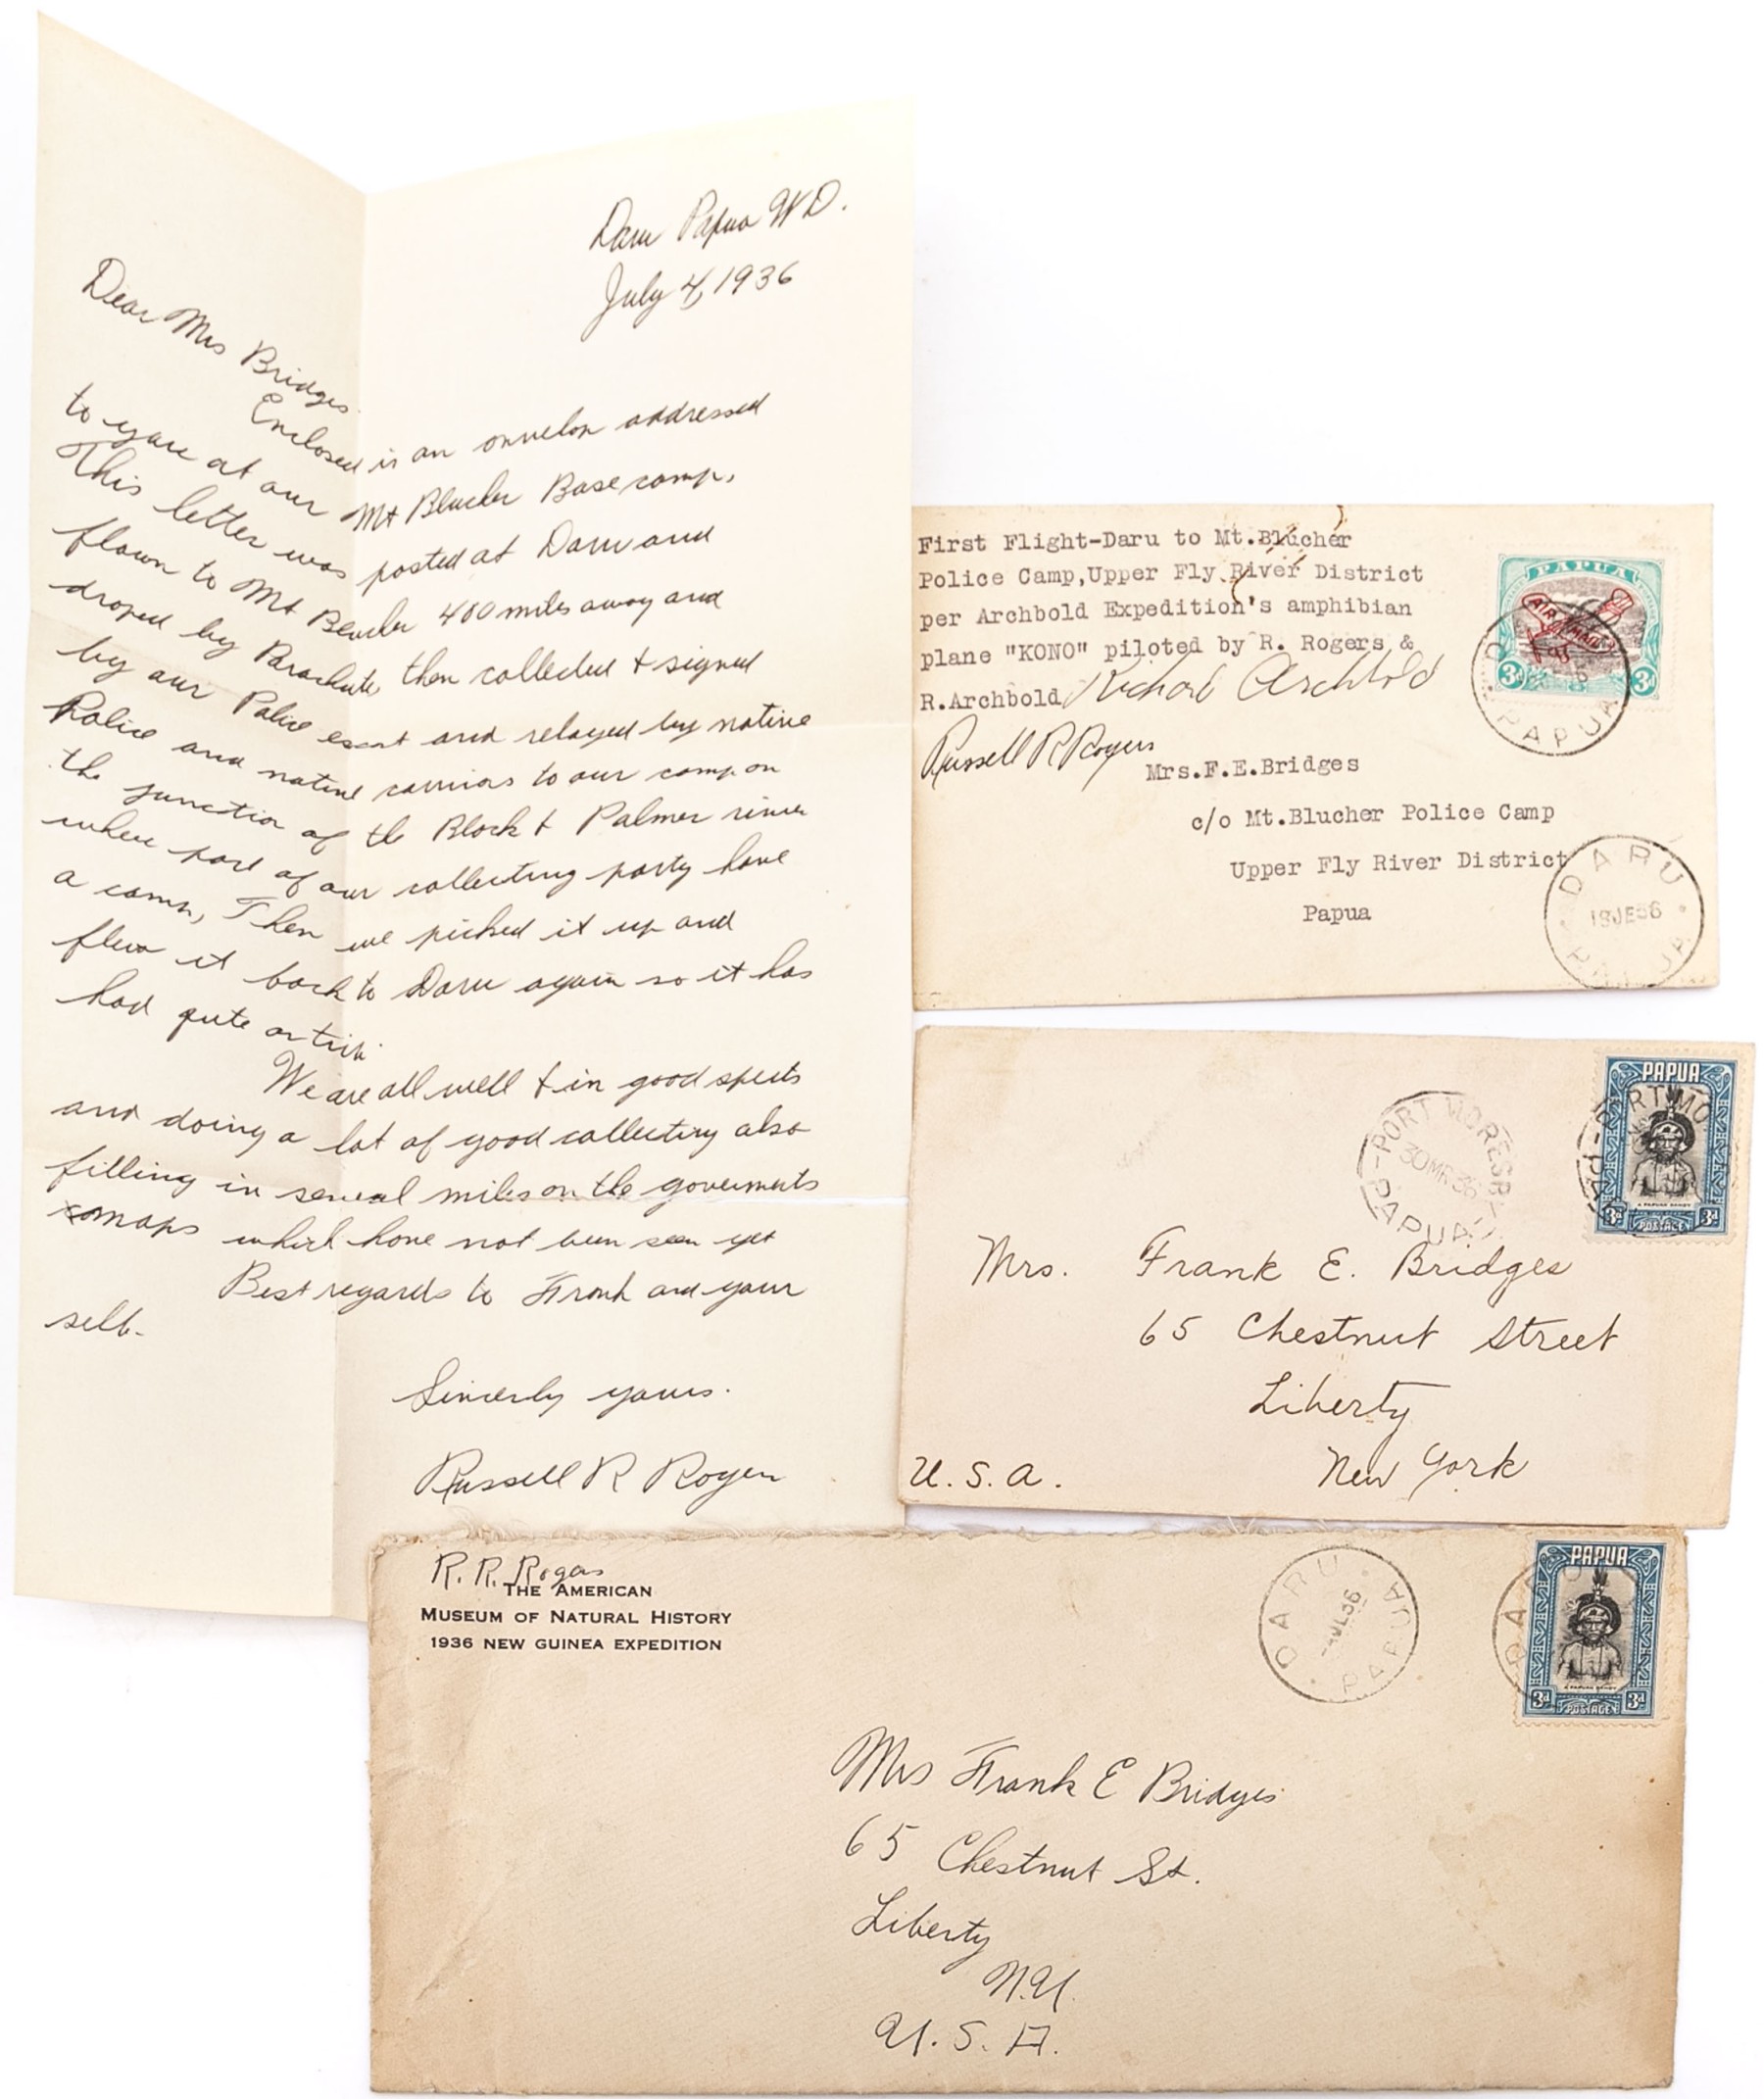 Daru Papua W D.
July 4, 1936
Dear Mrs Bridges
Enclosed is an onvelop addressed
to you at our Mt Blucher Base camp,
This letter was posted at Daru and
flown to Mt Blucher 400 miles away and
droped by Parachute, then collected & signed
by our Police escort and relayed by native
Police and native carriors to our camp on
the junction of the Black & Palmer river
where part of our collecting party have
a camp, Then we picked it up and
flew it back to Daru again so it has
had quite a trip.
We are all well & in good spirits
and doing a lot of good collecting also
filling in several miles on the goverments
maps which have not been seen yet
Best regards to Frank and your
self-
Sincerly yours.
Russell R Rogers
First Flight-Daru to Mt.Blucher
Police Camp,Upper Fly River District
per Archbold Expedition's amphibian
plane "KONO" piloted by R. Rogers &
R.Archbold Richard Archbold
Russell R Rogers
Mrs.F.E.Bridges
c/o Mt.Blucher Police Camp
Upper Fly River District
Papua
PAPUA
AIR MAIL
3d 3d
PAPUA
DARU
19JE36
PAPUA
PORT MORESBY
30MR36
PAPUA
PAPUA
PORT MO
A PAPUAN DANDY
3d POSTAGE 3d
Mrs. Frank E. Bridges
65 Chestnut Street
Liberty
New York
U.S.A.
R. R. Rogers
THE AMERICAN
MUSEUM OF NATURAL HISTORY
1936 NEW GUINEA EXPEDITION
DARU
JL36
PAPUA
PAPUA
A PAPUAN DANDY
3d POSTAGE 3d
Mrs Frank E Bridges
65 Chestnut St.
Liberty
N.Y.
U.S.A.